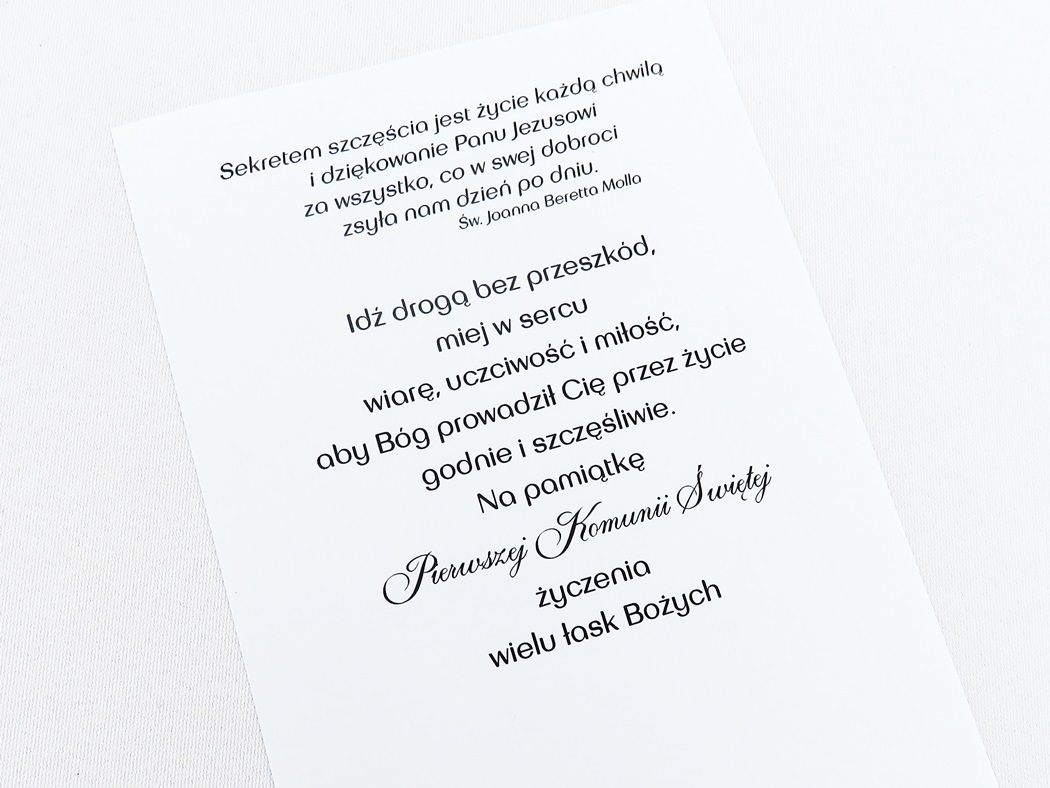 Sekretem szczęścia jest życie każdą chwilą
i dziękowanie Panu Jezusowi
za wszystko, co w swej dobroci
zsyła nam dzień po dniu.
Św. Joanna Beretta Molla
Idź drogą bez przeszkód,
miej w sercu
wiarę, uczciwość i miłość,
aby Bóg prowadził Cię przez życie
godnie i szczęśliwie.
Na pamiątkę
Pierwszej Komunii Świętej
życzenia
wielu łask Bożych